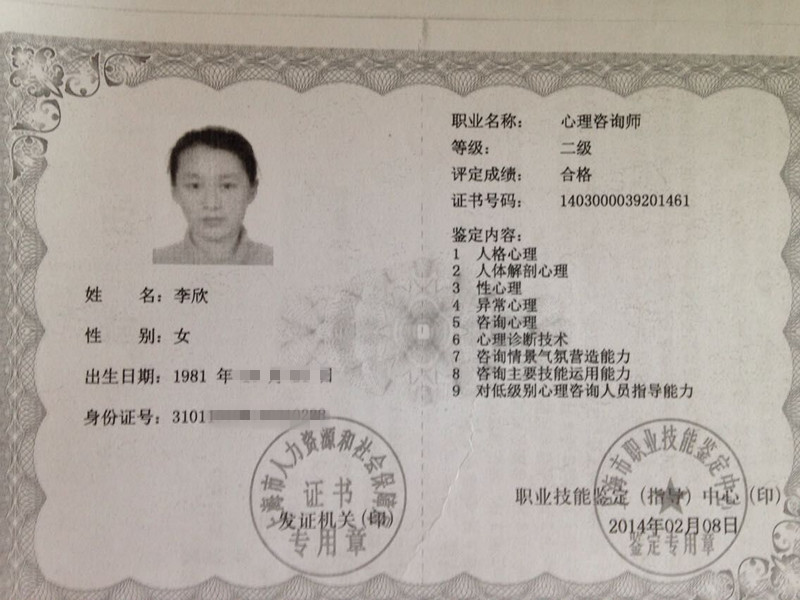 姓 名：李欣
性 别：女
出生日期：1981 年 月 日
身份证号：3101
上海市人力资源和社会保障
证书
发证机关(印)
专用章
职业名称： 心理咨询师
等级： 二级
评定成绩： 合格
证书号码： 1403000039201461
鉴定内容：
1 人格心理
2 人体解剖心理
3 性心理
4 异常心理
5 咨询心理
6 心理诊断技术
7 咨询情景气氛营造能力
8 咨询主要技能运用能力
9 对低级别心理咨询人员指导能力
上海市职业技能鉴定中心
职业技能鉴定（指导）中心（印）
2014年02月08日
鉴定专用章